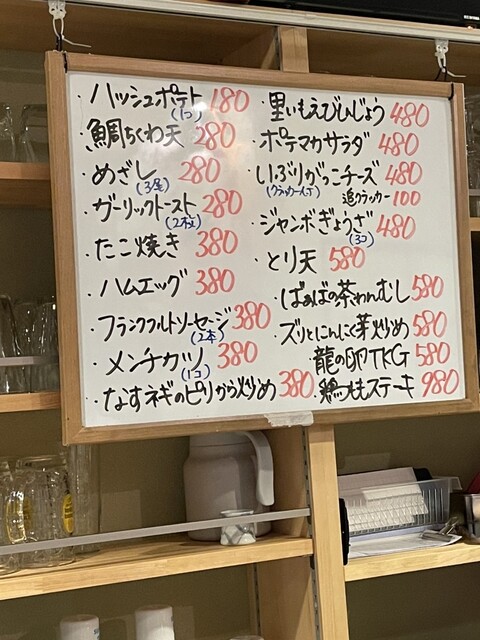 ・ハッシュポテト 180
(1コ)
・鯛ちくわ天 280
・めざし 280
(3尾)
・ガーリックトースト 280
(2枚)
・たこ焼き 380
・ハムエッグ 380
・フランクフルトソーセージ 380
(2本)
・メンチカツ 380
(1コ)
・なすネギのピリから炒め 380
・里いもえびひじょう 480
・ポテマカサラダ 480
・いぶりがっこチーズ 480
追クラッカー 100
・ジャンボぎょうざ 480
(3コ)
・とり天 580
・ばぁばの茶わんむし 580
・ズリとにんにく芽炒め 580
・龍の卵TKG 580
・鶏ももステーキ 980